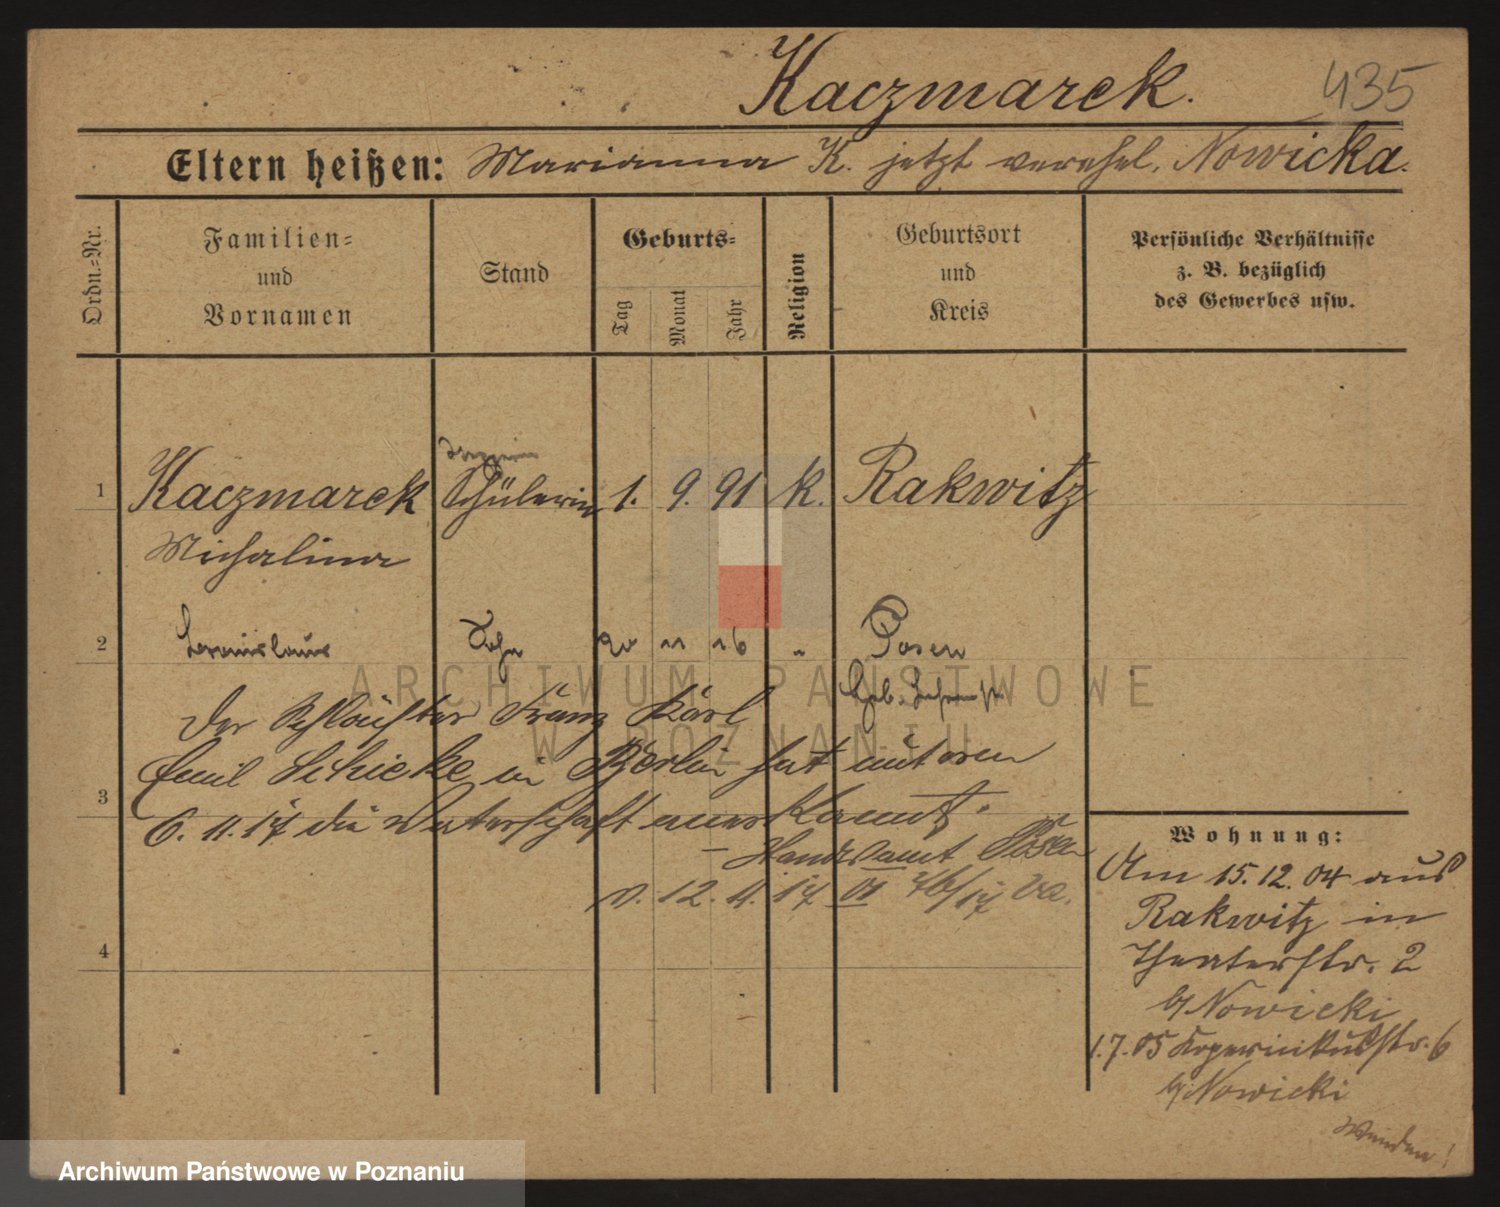 Kaczmarek.
435
Eltern heißen: Marianna K. jetzt verehel. Nowicka.
Ordn.=Nr.
Familien=
und
Vornamen
Stand
Geburts=
Tag
Monat
Jahr
Religion
Geburtsort
und
Kreis
Persönliche Verhältnisse
z. B. bezüglich
des Gewerbes usw.
1 Kaczmarek Schülerin 1. 9. 91 K. Rakwitz
Michalina
2 Sohn 20 11 16 " Posen
Der Schlächter Franz Karl
Emil Schicke in Berlin hat unterm
3
6. 11. 17 die Vaterschaft anerkannt.
Standesamt Posen
v. 12. 11. 17
4
Wohnung:
Am 15.12.04 aus
Rakwitz in
Theaterstr. 2
b/ Nowicki
1.7.05 Kopernikusstr. 6
b/ Nowicki
Wenden!
ARCHIWUM PAŃSTWOWE
W POZNANIU
Archiwum Państwowe w Poznaniu